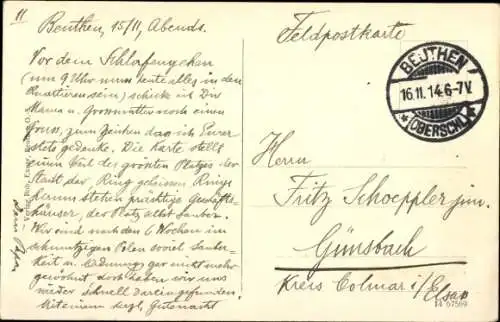 11
Beuthen, 15/11, Abends.
Vor dem Schlafengehen
(um 9 Uhr muss heute alles in den
Quartieren sein) schicke ich Dir
Mama u. Grossmutter noch einen
Gruss, zum Zeichen dass ich Eurer
stets gedenke. Die Karte stellt
einen Teil des grössten Platzes der
Stadt dar Ring geheissen. Rings
herum stehen prächtige Geschäfts-
häuser, der Platz selbst sauber.
Wir sind nach den 6 Wochen im
schmutzigen Polen soviel Sauber-
keit u. Ordnung gar nicht mehr
gewöhnt doch haben wir uns
wieder schnell dareingefunden.
Mit einem herzl. Gutenacht
Dein Papa
Feldpostkarte
BEUTHEN
16.11.14.6-7V.
*(OBERSCHL.)*
Herrn
Fritz Schoeppler jun.
Günsbach
Kreis Colmar i/Elsass
14 07569